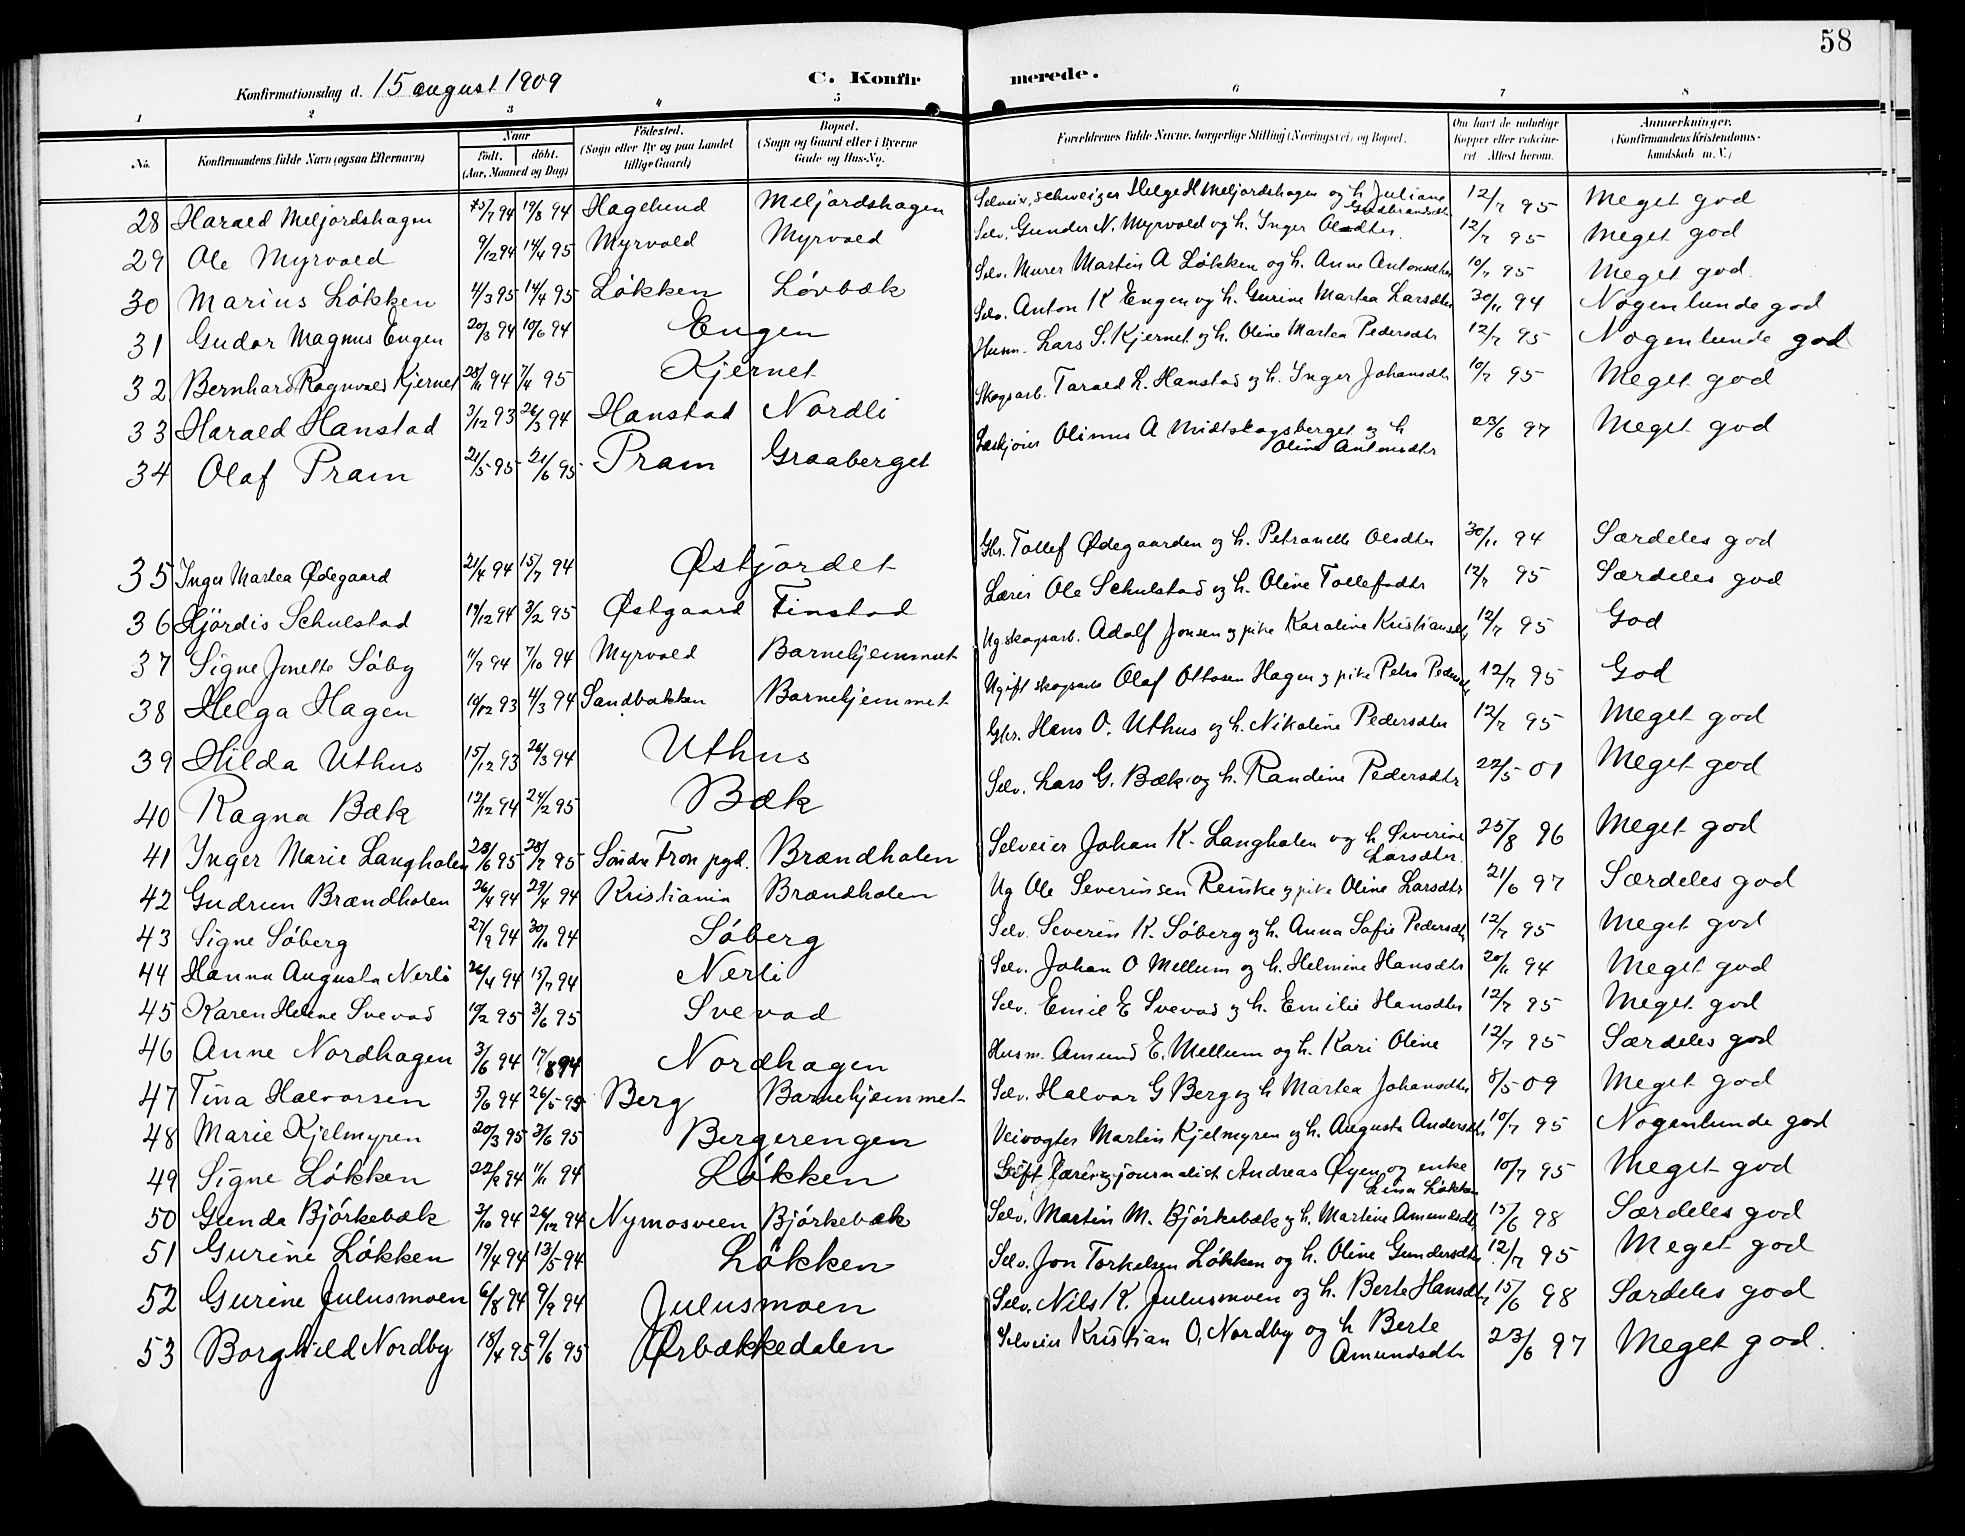 58
Konfirmationsdag d. 15 august 1909
C. Konfirmerede.
1 2 3 4 5 6 7 8
No. Konfirmandens fulde Navn (ogsaa Efternavn) Naar født, døbt. (Aar, Maaned og Dag) Fødested. (Sogn eller By og paa Landet tillige Gaard) Bopæl. (Sogn og Gaard eller i Byerne Gade og Hus-No. Forældrenes fulde Navne, borgerlige Stilling (Næringsvei) og Bopæl. Om havt de naturlige Kopper eller vaccineret Attest herom. Anmærkninger. (Konfirmandens Kristendomskundskab m. V.)
28 Harald Meljordshagen 15/7 94 19/8 94 Hagelund Meljordshagen Selveier, schweizer Helge H Meljordshagen og h. Juliane Gudbrandsdtr 12/7 95 Meget god
29 Ole Myrvold 9/12 94 14/4 95 Myrvold Myrvold Selv. Gunder N. Myrvold og h. Inger Olsdtr. 12/7 95 Meget god
30 Marius Løkken 4/3 95 14/4 95 Løkken Løvbæk Selv. Murer Martin A Løkken og h. Anne Antonsdtr 10/7 95 Meget god.
31 Gudor Magnus Engen 20/3 94 10/6 94 Engen Selv. Anton K Engen og h. Gurine Martea Larsdtr 30/11 94 Nogenlunde god
32 Bernhard Ragnvald Kjernet 28/11 94 7/4 95 Kjernet Husm. Lars S. Kjernet og h. Oline Martea Pedersdtr 12/7 95 Nogenlunde god
33 Harald Hanstad 3/12 93 26/3 94 Hanstad Nordli Skogsarb. Tarald L. Hanstad og h. Inger Johansdtr 10/7 95 Meget god
34 Olaf Pram 21/5 95 21/6 95 Pram Graaberget Olinus A Midtskogsberget og h Oline Antonsdtr 23/6 97 Meget god
35 Inger Martea Ødegaard 21/4 94 15/7 94 Østjordet Gbr. Tollef Ødegaarden og h. Petronelle Olsdtr 30/11 94 Særdeles god
36 Hjördis Schulstad 19/12 94 3/2 95 Østgaard Finstad Lærer Ole Schulstad og h. Oline Tollefsdtr 12/7 95 Særdeles god
37 Signe Jonette Söby 11/9 94 7/10 94 Myrvold Barnehjemmet Ug skogsarb. Adolf Jonsen og pike Karoline Kristiansdtr 12/7 95 God
38 Helga Hagen 14/12 93 4/3 94 Sandbakken Barnehjemmet Ugift skogsarb Olaf Ottosen Hagen og pike Petra Pedersdtr 12/7 95 God
39 Hilda Uthus 15/12 93 26/3 94 Uthus Gbr. Hans O. Uthus og h. Nikoline Pedersdtr 12/7 95 Meget god
40 Ragna Bæk 12/12 94 24/2 95 Bæk Selv. Lars G. Bæk og h. Randine Pedersdtr 22/5 01 Meget god
41 Inger Marie Langholen 23/6 95 28/7 95 Söndre Fron pgd. Brændholen Selveier Johan K. Langholen og h. Siverine Larsdtr. 25/8 96 Meget god
42 Gudrun Brændholen 26/4 94 29/4 94 Kristiania Brændholen Ug Ole Severinsen Renske og pike Oline Larsdtr 21/6 97 Særdeles god
43 Signe Söberg 27/9 94 30/10 94 Söberg Selv. Severin K. Söberg og h. Anna Sofie Pedersdtr 12/7 95 Meget god
44 Hanna Augusta Nerli 26/4 94 15/7 94 Nerli Selv. Johan O Mellum og h. Helmine Hansdtr 20/11 94 Meget god
45 Karen Helene Svevad 19/2 95 3/6 95 Svevad Selv. Emil E Svevad og h. Emilie Hansdtr 12/7 95 Meget god
46 Anne Nordhagen 3/6 94 17/8 94 Nordhagen Husm. Amund E. Mellum og h. Kari Oline 12/7 95 Særdeles god
47 Tina Halvorsen 5/6 94 26/5 95 Berg Barnehjemmet Selv. Halvor G Berg og h Martea Johansdtr 8/5 09 Meget god
48 Marie Kjelmyren 20/3 95 3/6 95 Bergerengen Veivogter Martin Kjelmyren og h. Augusta Andersdtr 10/7 95 Nogenlunde god
49 Signe Løkken 22/9 94 11/11 94 Løkken Gift lærer og journalist Andreas Øyen og enke Lina Løkken 10/7 95 Meget god
50 Gunda Björkebæk 3/10 94 26/12 94 Nymosveen Björkebæk Selv. Martin M. Björkebæk og h. Martine Amundsdtr 15/6 98 Særdeles god
51 Gurine Løkken 19/4 94 13/5 94 Løkken Selv. Jon Torkelsen Løkken og h. Oline Gundersdtr 12/7 95 Meget god
52 Gurine Julusmoen 6/8 94 9/9 94 Julusmoen Selv. Nils K. Julusmoen og h. Berte Hansdtr 15/6 98 Særdeles god
53 Borghild Nordby 18/4 95 9/6 95 Ørbækkedalen Selveier Kristian O. Nordby og h Berte Amundsdtr 23/6 97 Meget god.